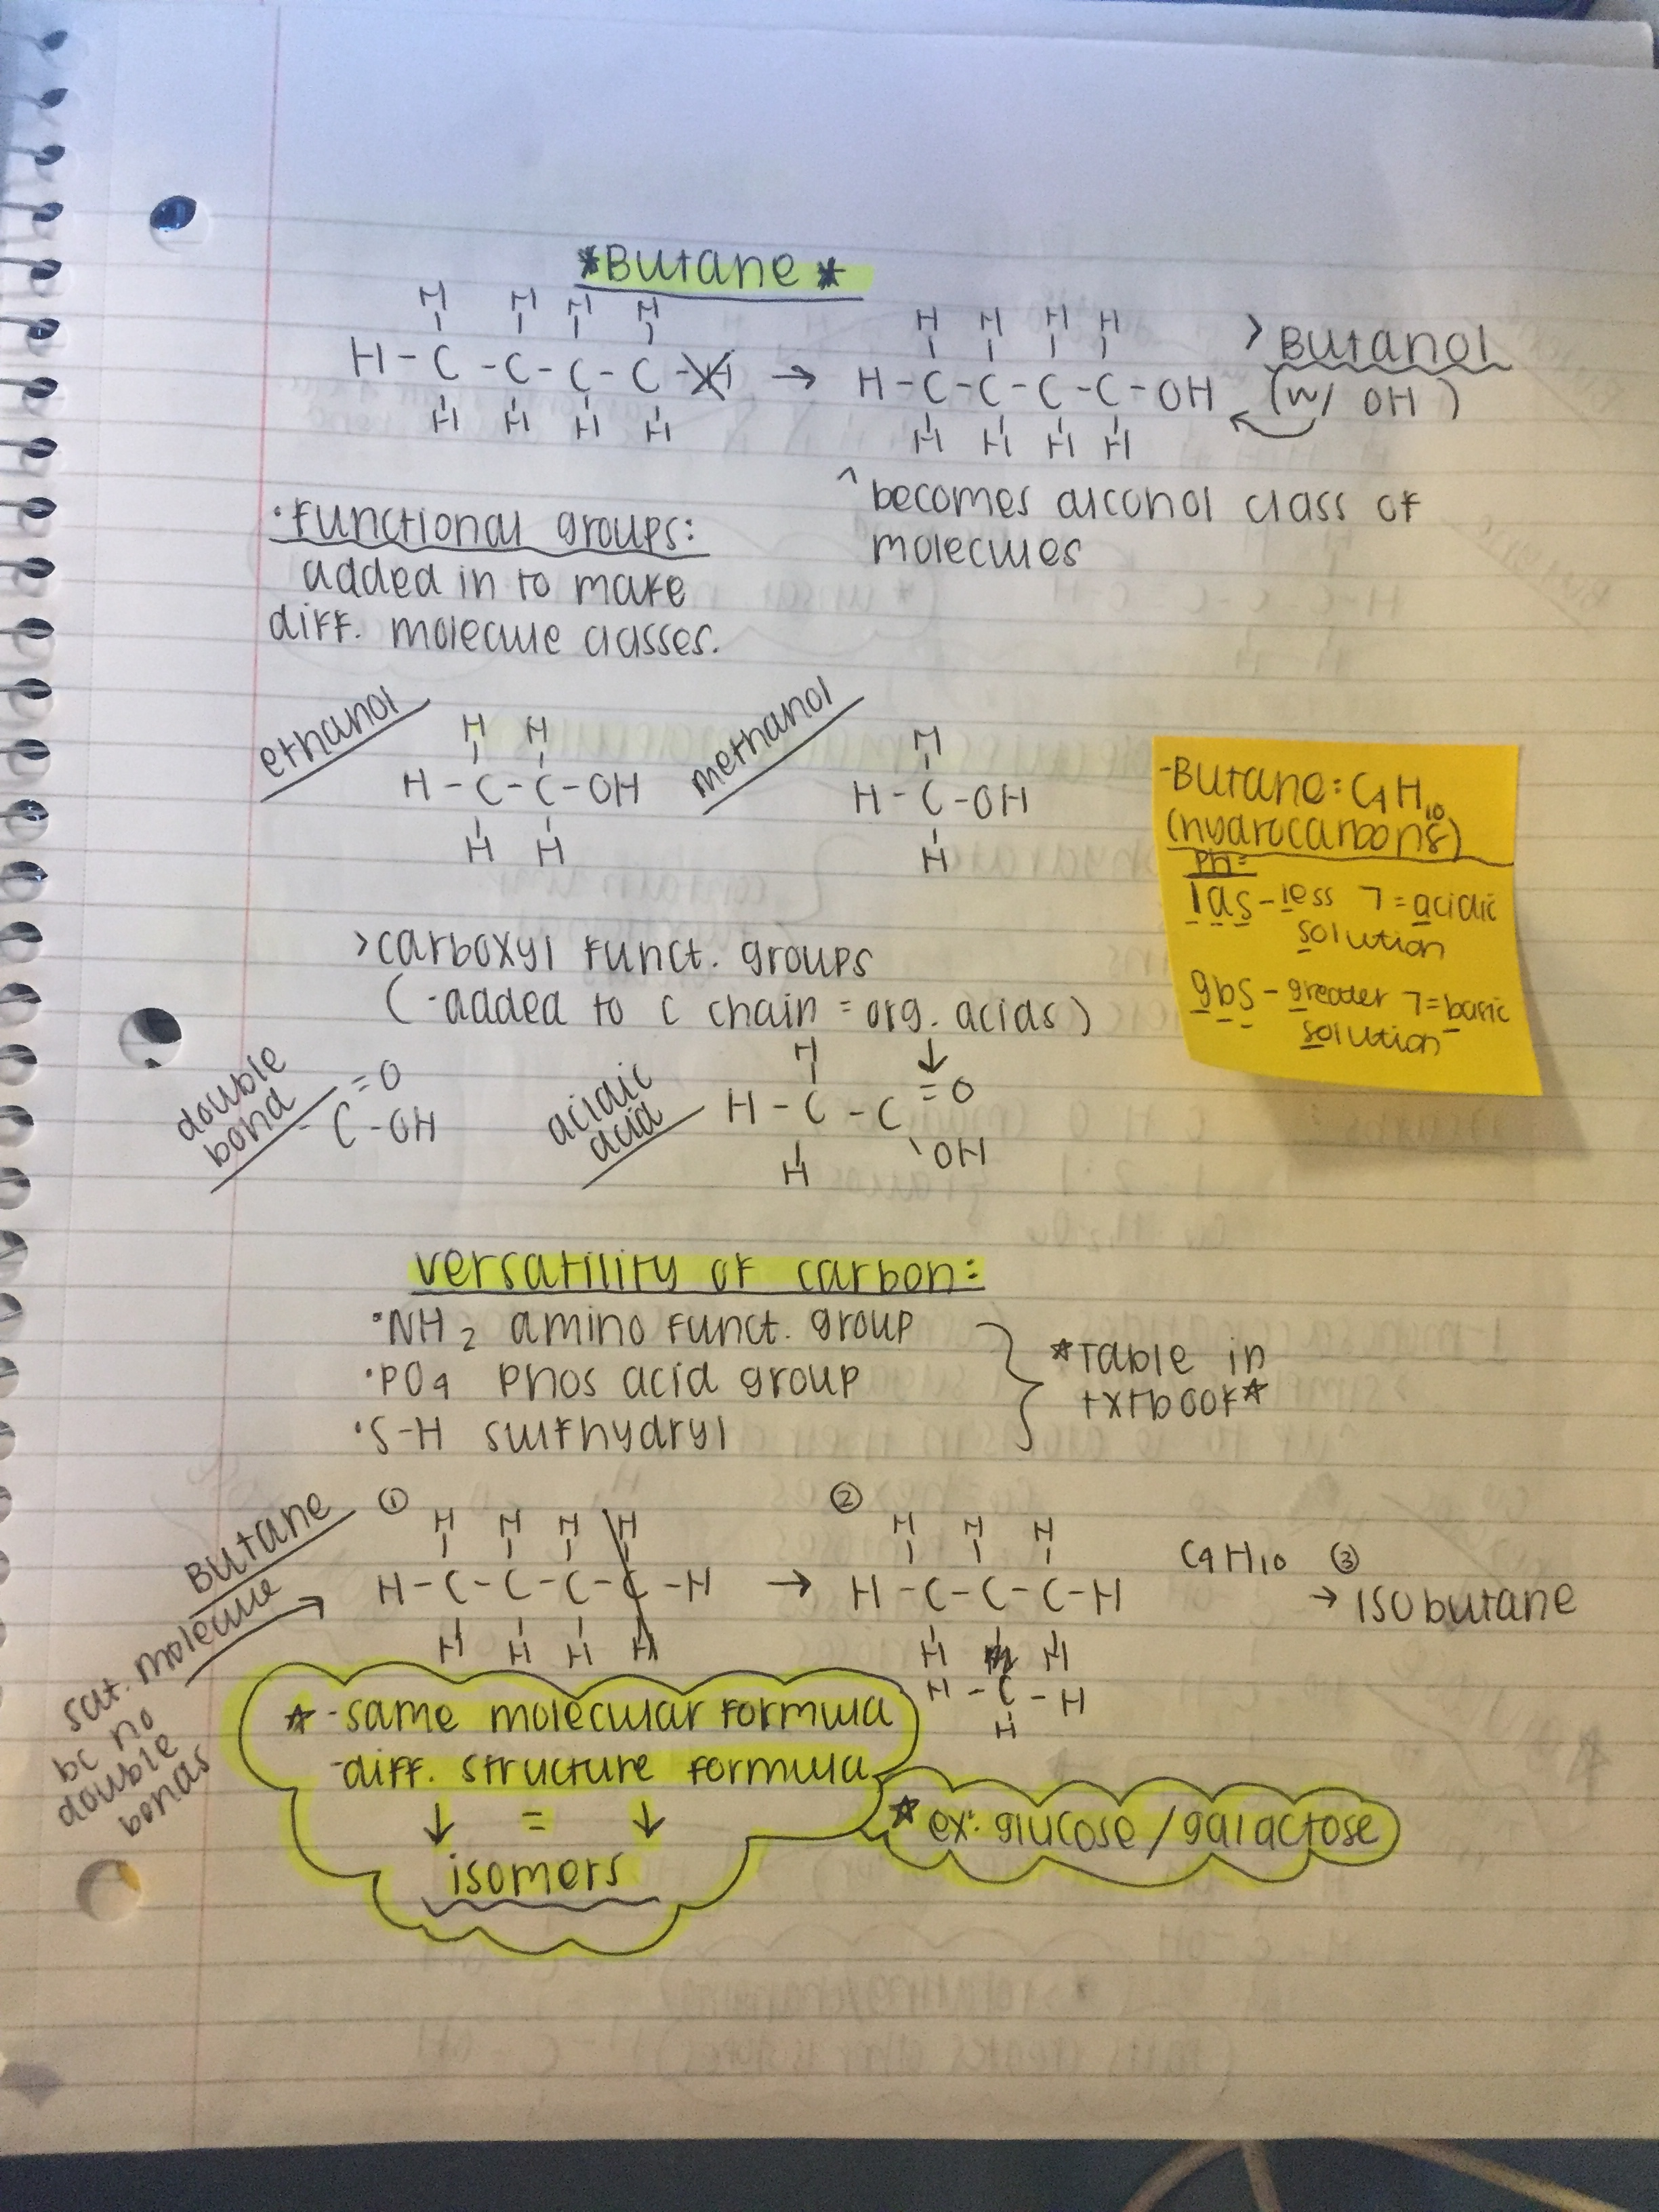 *Butane*
H H H H
H-C-C-C-C-H → H-C-C-C-C-OH
H H H H
H H H H
H H H H
> Butanol
(w/ OH)
^ becomes alcohol class of
molecules
·functional groups:
added in to make
diff. molecule classes.
ethanol
H H
H-C-C-OH
H H
methanol
H
H-C-OH
H
-Butane: C4H10
(hydrocarbons)
PH=
las-less 7=acidic
solution
gbs-greater 7=basic
solution
>carboxyl funct. groups
(-added to C chain = org. acids)
double
bond
=O
-C-OH
acidic
acid
H ↓
H-C-C=O
H OH
versatility of carbon:
·NH2 amino funct. group
·PO4 phos acid group
·S-H sulfhydryl
*Table in
txtbook*
Butane
sat. molecule
bc no
double
bonds
①
H H H H
H-C-C-C-C-H →
H H H H
②
H H H
H-C-C-C-H
H H H
H-C-H
H
C4H10 ③
→ isobutane
* -same molecular formula
-diff. structure formula
↓ = ↓
isomers
* ex: glucose/galactose